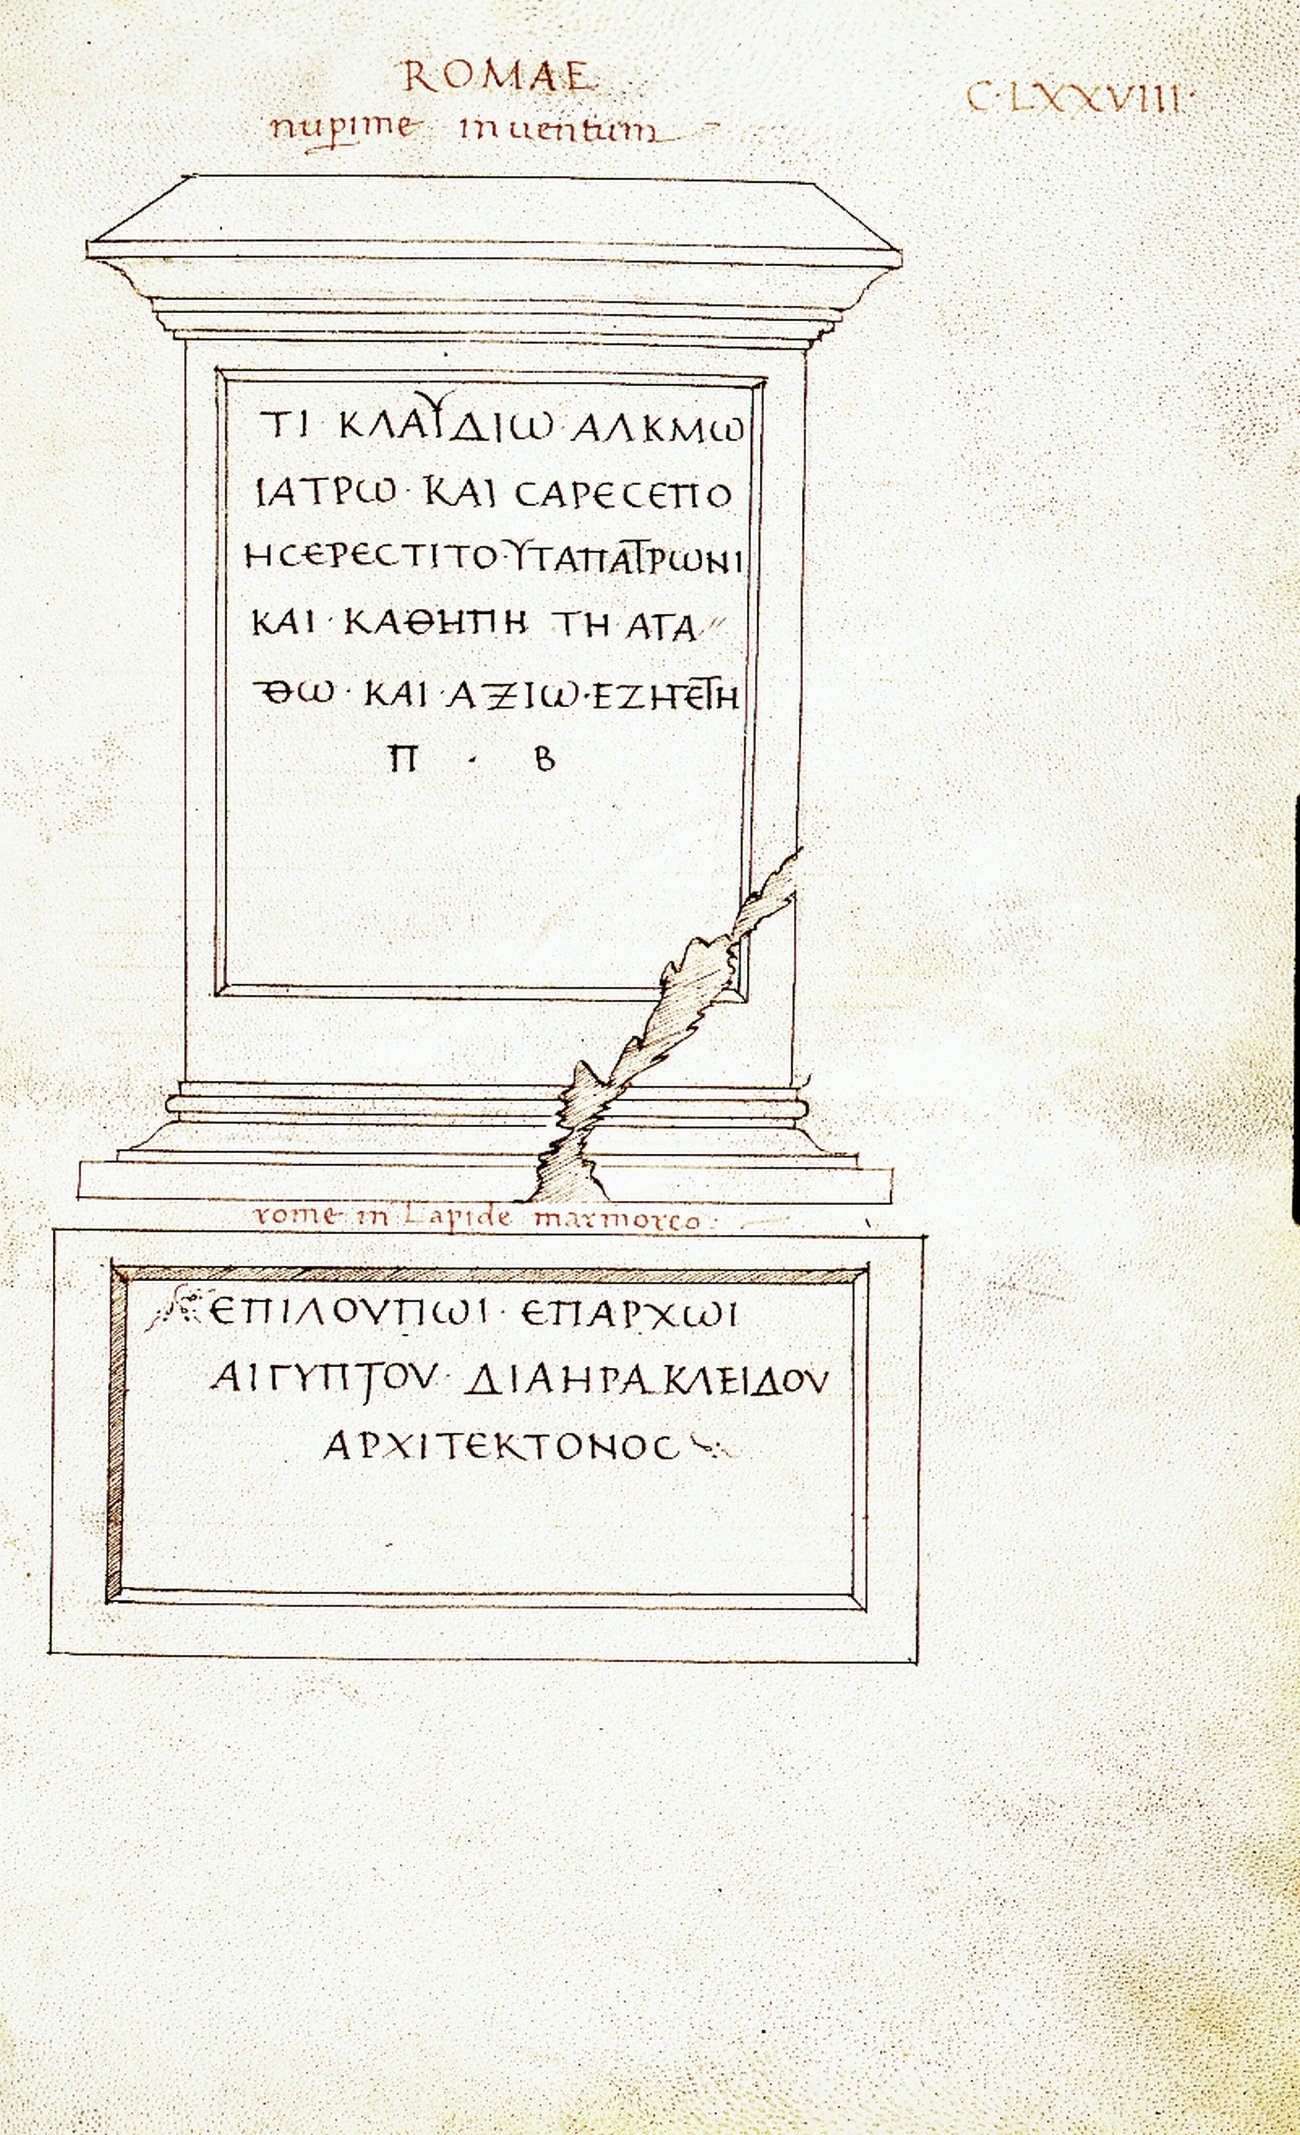 ROMAE
nupime inuentum
C·LXXVIII·
ΤΙ ΚΛΑΥΔΙω·ΑΛΚΜω
ΙΑΤΡω·ΚΑΙ CΑΡΕCΕΠΟ
ΗCΕΡΕCΤΙΤΟΥΤΑΠΑΤΡωΝΙ
ΚΑΙ·ΚΑΘΗΠΗ ΤΗ ΑΤΑ〃
Θω·ΚΑΙ·ΑΞΙω·ΕΖΗΤΕΤΗ
Π · Β
rome in Lapide marmoreo:
ΕΠΙΛΟΥΠωΙ·ΕΠΑΡΧωΙ
ΑΙΓΥΠΤΟΥ·ΔΙΑΗΡΑΚΛΕΙΔΟΥ
ΑΡΧΙΤΕΚΤΟΝΟC